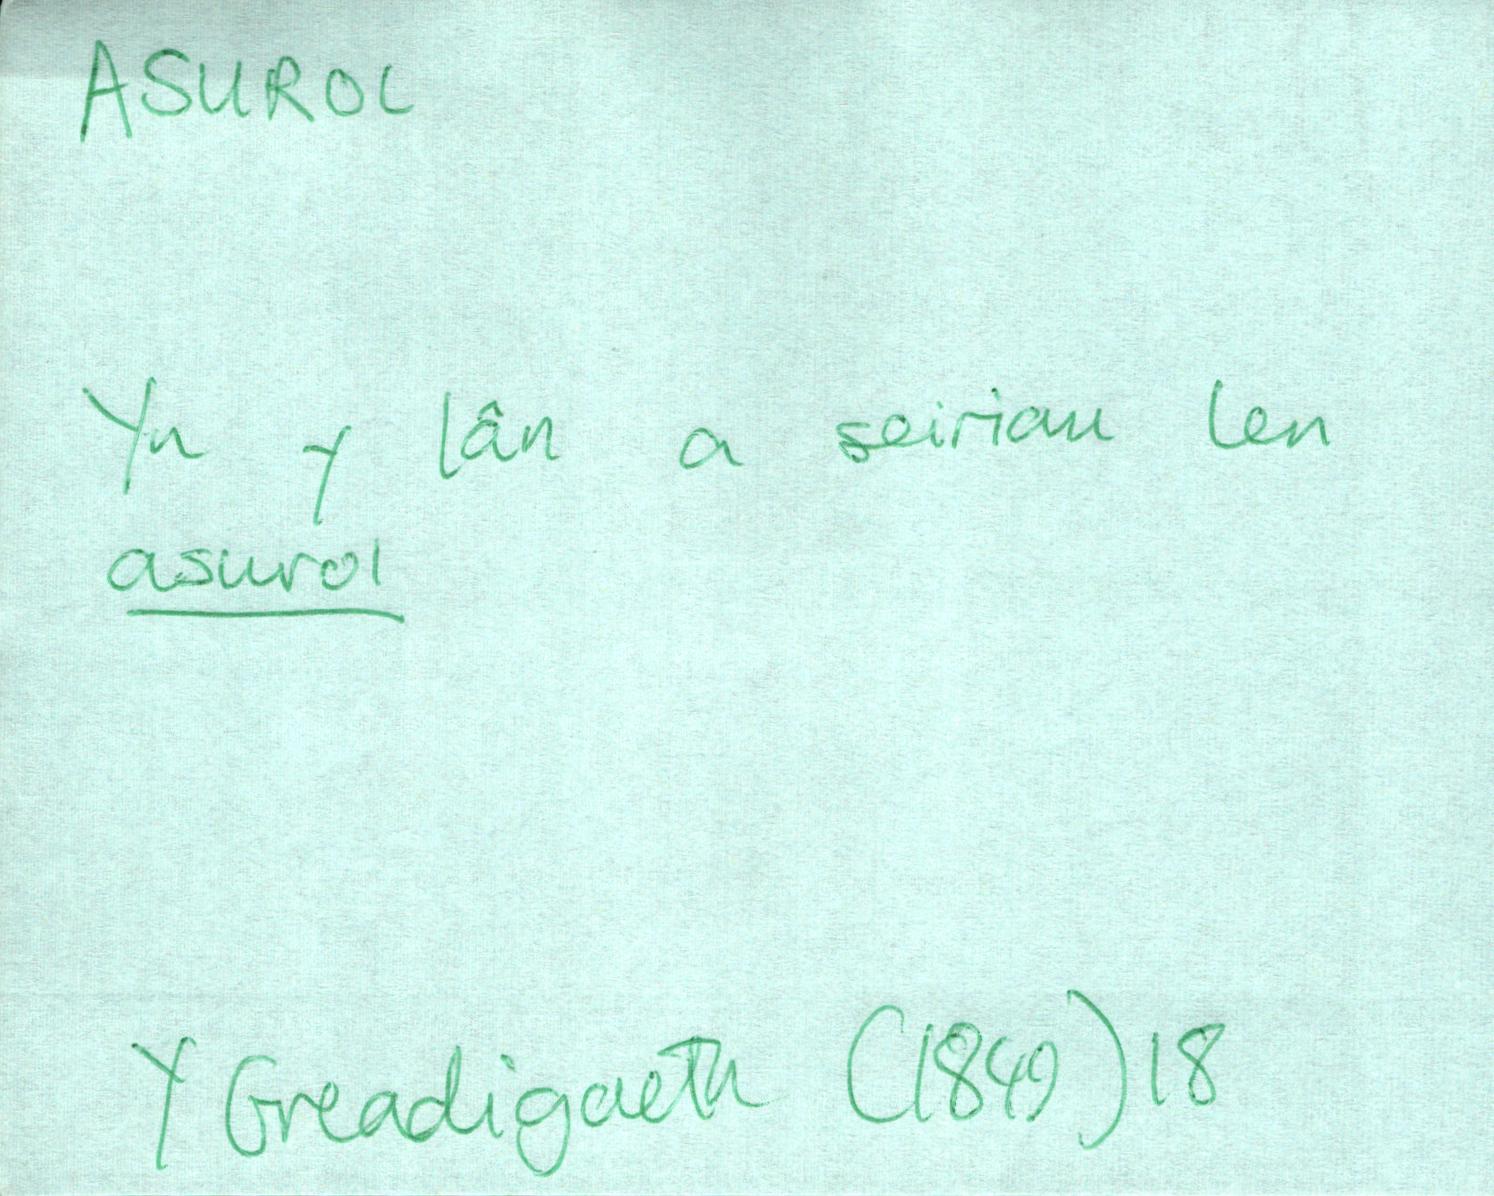 ASUROL
Yn y lân a seirian len
asurol
Y Greadigaeth (1849) 18